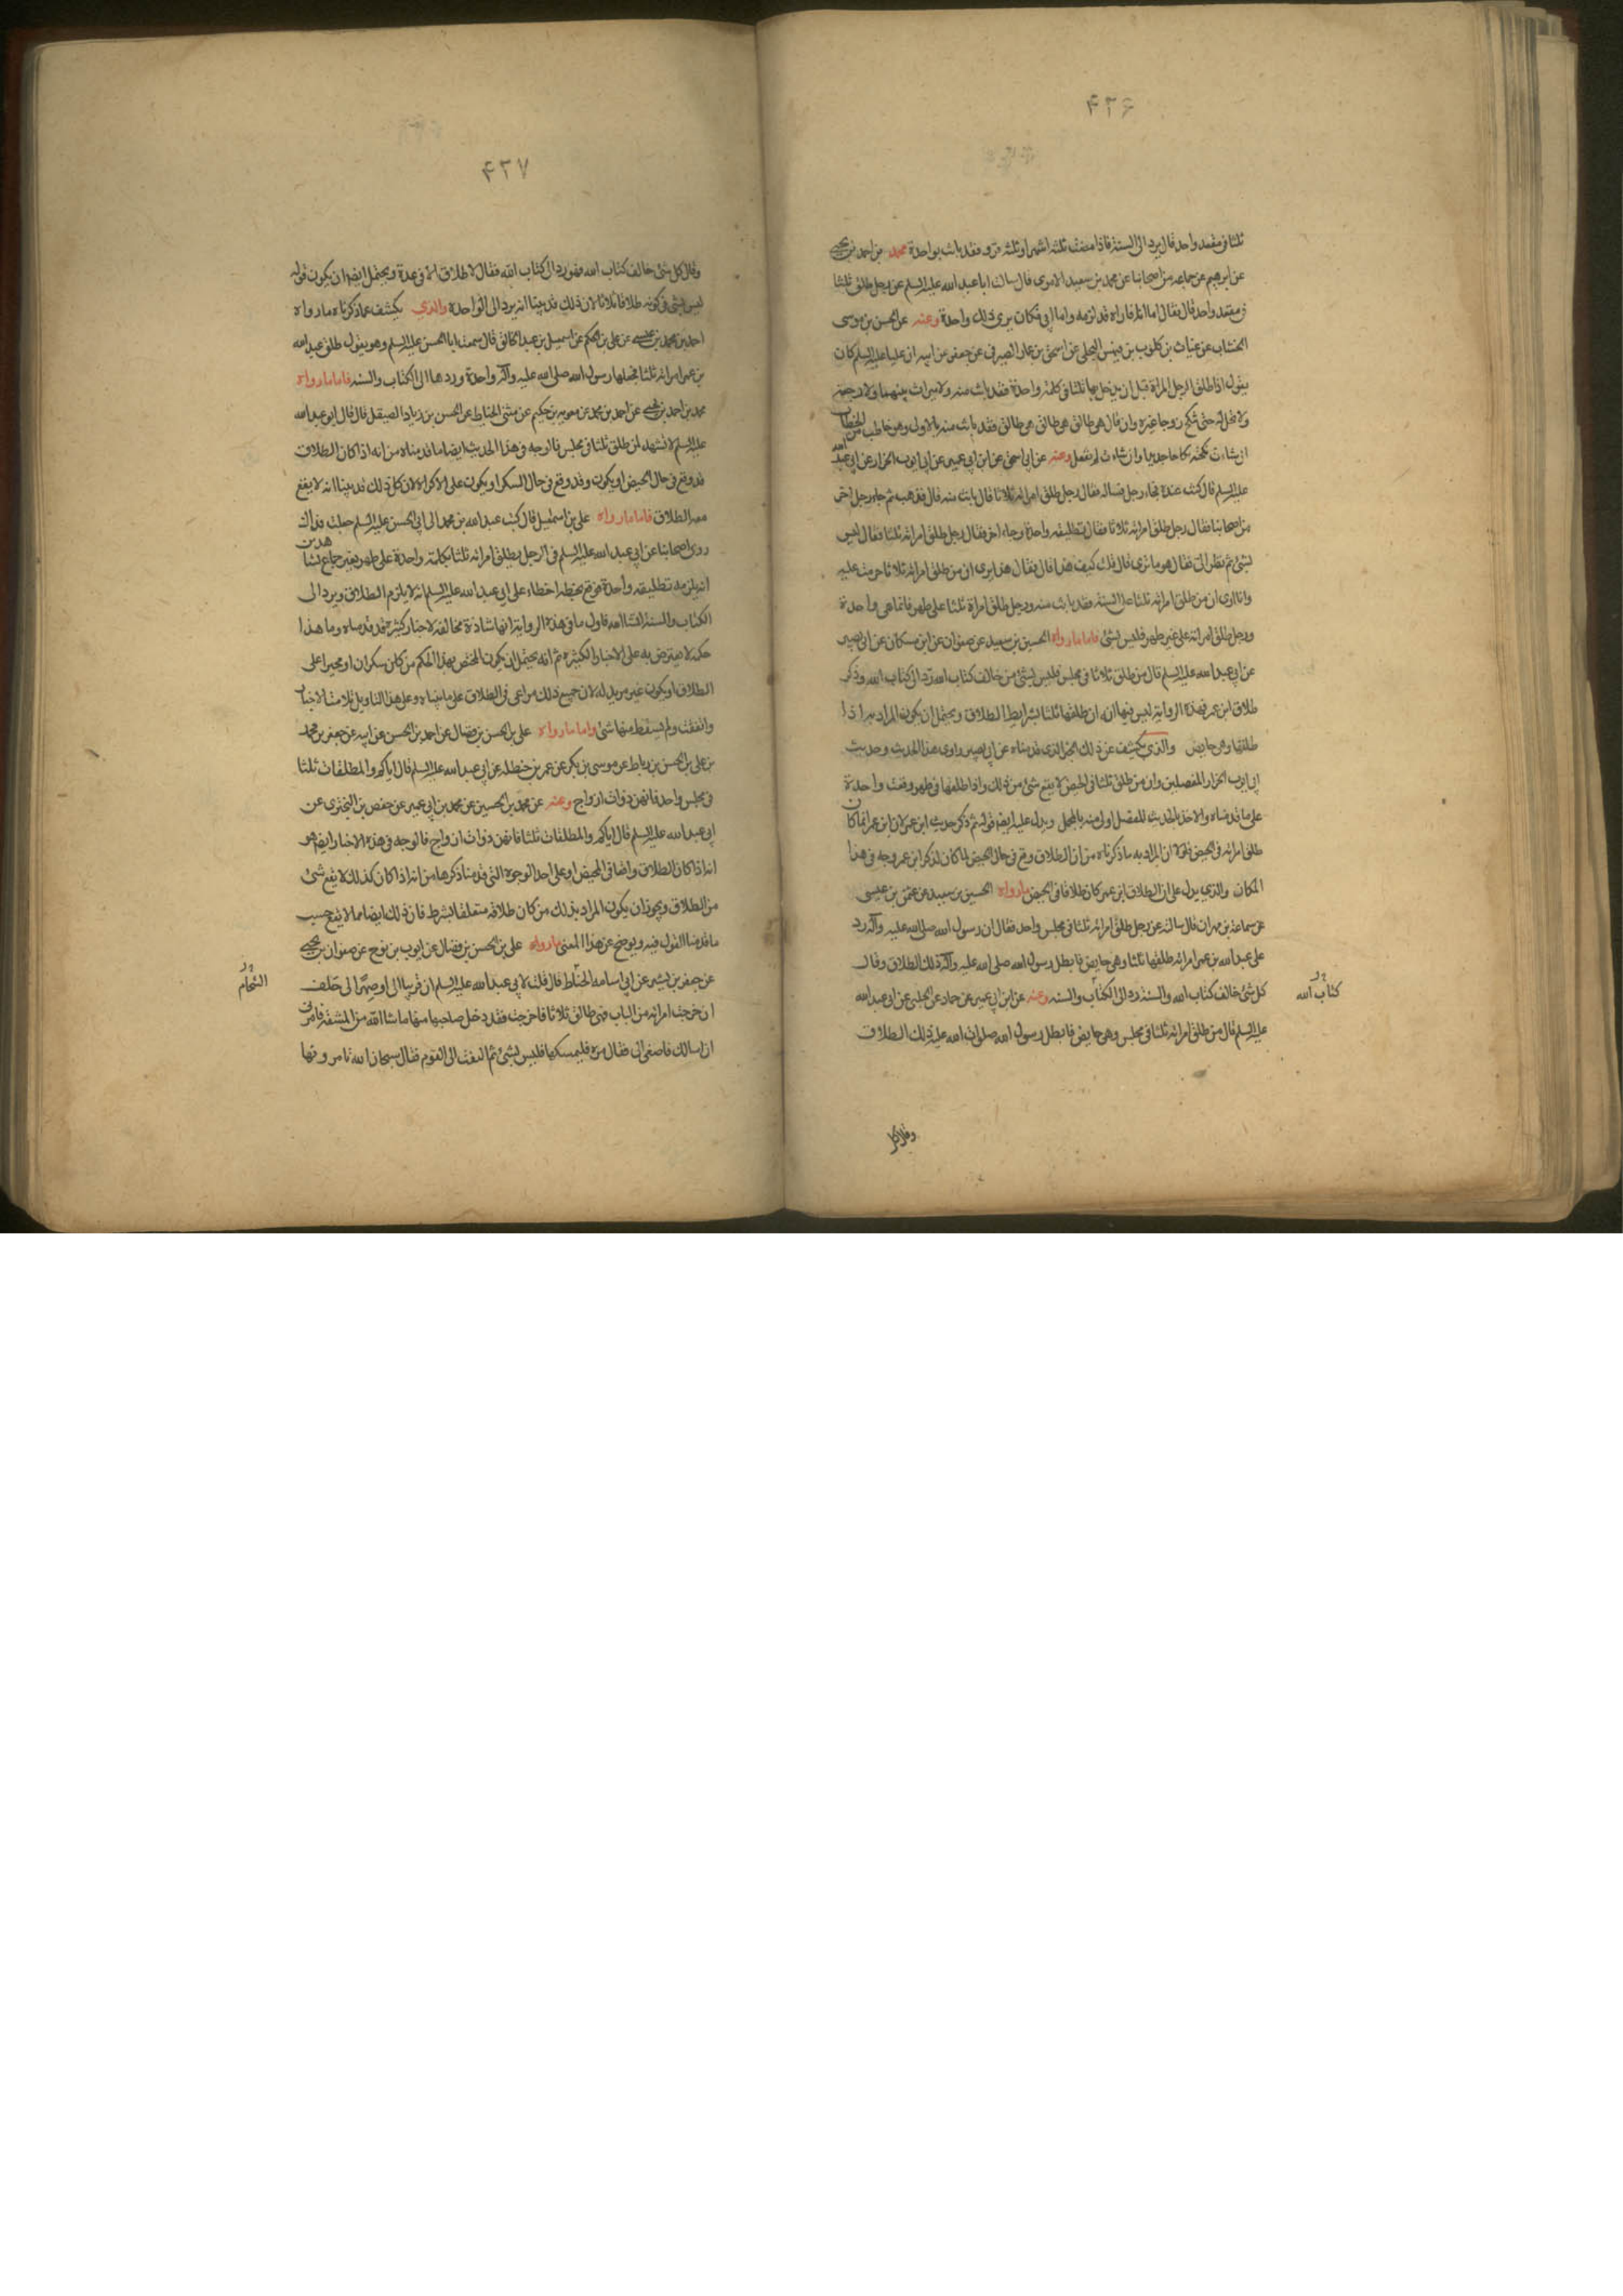 ۴۳۶
ثلثا فى مقعد واحد قال يرد الى السنة فاذا مضت ثلثه اشهر او ثلثه قروء فقد بانت بواحدة محمد بن احمد بن يحيى
عن ابرهيم عن جماعه من اصحابنا عن محمد بن سعيد الاموى قال سالت ابا عبد الله عليه السلم عن رجل طلق ثلثا
فى مقعد واحد قال فقال اما انا فاراه قد لزمه واما ابى فكان يرى ذلك واحدة وعنه عن الحسن بن موسى
الخشاب عن غياث بن كلوب بن فيهس البجلى عن اسحق بن عمار الصيرفى عن جعفر عن ابيه ان عليا عليه السلم كان
يقول اذا طلق الرجل المراة قبل ان يدخل بها ثلثا فى كلمة واحدة فقد بانت منه ولا ميراث بينهما ولا رجعة
ولا تحل له حتى تنكح زوجا غيره وان قال هى طالق هى طالق هى طالق فقد بانت منه بالاولى وهو خاطب من الخطاب
ان شاءت نكحته نكاحا جديدا وان شاءت لم تفعل وعنه عن ابى اسحق عن ابن ابى عمير عن ابى ايوب الخزاز عن ابى عبد الله
عليه السلم قال كنت عنده فجاء رجل فساله فقال رجل طلق امراته ثلاثا قال بانت منه قال فذهب ثم جاء رجل اخر
من اصحابنا فقال رجل طلق امراته ثلاثا فقال تطليقه واحدة وجاء اخر فقال رجل طلق امراته ثلثا فقال ليس
بشئ ثم نظر الى فقال هو ما ترى قال قلت كيف هذا قال فقال هذا يرى ان من طلق امراته ثلاثا حرمت عليه
وانا ارى ان من طلق امراته ثلثا على السنة فقد بانت منه ورجل طلق امراة ثلثا على طهر فانما هى واحدة
ورجل طلق امراته على غير طهر فليس بشئ فاما ما رواه الحسين بن سعيد عن صفوان عن ابن مسكان عن ابى بصير
عن ابى عبد الله عليه السلم قال من طلق ثلاثا فى مجلس فليس بشئ من خالف كتاب الله رد الى كتاب الله وذكر
طلاق ابن عمر فهذه الرواية ليس فيها انه ان طلقها ثلثا بشرايط الطلاق ويحتمل ان يكون المراد به اذا
طلقها وهى حايض والذى يكشف عن ذلك الخبر الذى قدمناه عن ابى بصير راوى هذا الحديث وحديث
ابى ايوب الخزاز المفصلين وان من طلق ثلثا فى الحيض لا يقع شئ من ذلك واذا طلقها فى طهر وقعت واحدة
على ما قدمناه والاخذ بالحديث المفصل اولى منه بالمجمل ويدل عليه ايضا قوله ثم ذكر حديث ابن عمر لان ابن عمر انما كان
طلق امراته فى الحيض فلولا ان المراد به ما ذكرناه من ان الطلاق وقع فى حال الحيض لما كان لذكر ابن عمر وجه فى هذا
المكان والذى يدل على ان الطلاق ابن عمر كان طلاقا فى الحيض ما رواه الحسين بن سعيد عن عثمن بن عيسى
عن سماعة بن مهران قال سالته عن رجل طلق امراته ثلثا فى مجلس واحد فقال ان رسول الله صلى الله عليه وآله رد
على عبد الله بن عمر امراته طلقها ثلثا وهى حايض فابطل رسول الله صلى الله عليه وآله ذلك الطلاق وقال
كل شئ خالف كتاب الله والسنة رد الى الكتاب والسنه وعنه عن ابن ابى عمير عن حماد عن الحلبى عن ابى عبد الله
كتاب الله
عليه السلم قال من طلق امراته ثلثا فى مجلس وهى حايض فابطل رسول الله صلوات الله عليه ذلك الطلاق
وقال كل
۴۳۷
وقال كل شئ خالف كتاب الله فهو رد الى كتاب الله فقال لا طلاق الا فى عدة ويحتمل ايضا ان يكون قوله
ليس بشئ فى كونه طلاقا ثلاثا لان ذلك قد بينا انه يرد الى الواحدة والذى يكشف عما ذكرناه ما رواه
احمد بن محمد بن عيسى عن على بن الحكم عن اسمعيل بن عبد الخالق قال سمعت ابا الحسن عليه السلم وهو يقول طلق عبد الله
بن عمر امراته ثلثا فجعلها رسول الله صلى الله عليه وآله واحدة وردها الى الكتاب والسنه فاما ما رواه
محمد بن احمد بن يحيى عن احمد بن محمد عن معويه بن حكيم عن مثنى الحناط عن الحسن بن زياد الصيقل قال قال ابو عبد الله
عليه السلم لا تشهد لمن طلق ثلثا فى مجلس فالوجه فى هذا الحديث ايضا ما قدمناه من انه اذا كان الطلاق
قد وقع فى حال الحيض او يكون وقد وقع فى حال السكر او يكون على الاكراه لان كل ذلك قد بينا انه لا يقع
معه الطلاق فاما ما رواه على بن اسمعيل قال كتب عبد الله بن محمد الى ابى الحسن عليه السلم جعلت فداك
روى اصحابنا عن ابى عبد الله عليه السلم فى الرجل يطلق امراته ثلثا بكلمة واحدة على طهر بغير جماع بشاهدين
انه يلزمه تطليقه واحدة فوقع بخطه اخطاء على ابى عبد الله عليه السلم انه لا يلزم الطلاق ويرد الى
الكتاب والسنة انشا الله فاول ما فى هذه الرواية انها شاذة مخالفه لاخبار كثيرة قد قدمناه وما هذا
حكمه لا يعترض به على الاخبار الكثيره ثم انه يحتمل ان يكون المختص بهذا الحكم من كان سكران او مجبرا على
الطلاق او يكون غير مريد له لان جميع ذلك مراعى فى الطلاق على ما بيناه وعلى هذا التاويل تلامت الاخبار
واتفقت ولم يسقط منها شئ واما ما رواه على بن الحسن بن فضال عن احمد بن الحسن عن ابيه عن جعفر بن محمد
عن على بن الحسن بن رباط عن موسى بن بكر عن عمر بن حنظله عن ابى عبد الله عليه السلم قال اياكم والمطلقات ثلثا
فى مجلس واحد فانهن ذوات ازواج وعنه عن محمد بن الحسين عن محمد بن ابى عمير عن حفص بن البخترى عن
ابى عبد الله عليه السلم قال اياكم والمطلقات ثلثا فانهن ذوات ازواج فالوجه فى هذه الاخبار ايضا هو
انه اذا كان الطلاق واقعا فى المحيض او على احد الوجوه التى قدمنا ذكرها من انه اذا كان كذلك لا يقع شئ
من الطلاق ويجوز ان يكون المراد بذلك من كان طلاقه متعلقا بشرط فان ذلك ايضا مما لا يقع حسب
ما قدمنا القول فيه ويوضح عن هذا المعنى ما رواه على بن الحسن بن فضال عن ايوب بن نوح عن صفوان بن يحيى
عن جعفر بن بشير عن ابى اسامه الحناط قال قلت لابى عبد الله عليه السلم ان قريبا لى او صهرا لى حلف
الشحام
ان خرجت امراته من الباب فهى طالق ثلاثا فاخرجت فقد دخل صاحبها منها ما شا الله من المشقة فامرنى
ان اسالك فاصغى الى فقال مره فليمسكها فليس بشئ ثم التفت الى القوم فقال سبحان الله تامرونها